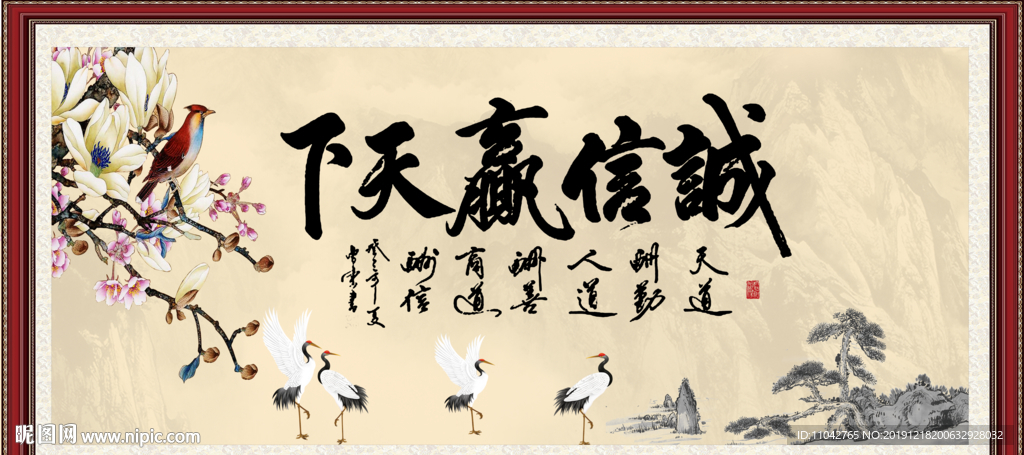 誠信贏天下
天道
酬勤
人道
酬善
商道
酬信
昵图网 www.nipic.com
ID:11042765 NO:20191218200632928032